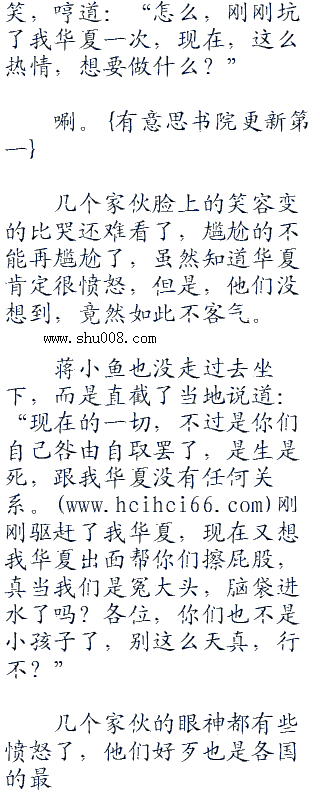 笑，哼道：“怎么，刚刚坑
了我华夏一次，现在，这么
热情，想要做什么？”
唰。{有意思书院更新第
一}
几个家伙脸上的笑容变
的比哭还难看了，尴尬的不
能再尴尬了，虽然知道华夏
肯定很愤怒，但是，他们没
想到，竟然如此不客气。
www.shu008.com
蒋小鱼也没走过去坐
下，而是直截了当地说道：
“现在的一切，不过是你们
自己咎由自取罢了，是生是
死，跟我华夏没有任何关
系。(www.hcihci66.com)刚
刚驱赶了我华夏，现在又想
我华夏出面帮你们擦屁股，
真当我们是冤大头，脑袋进
水了吗？各位，你们也不是
小孩子了，别这么天真，行
不？”
几个家伙的眼神都有些
愤怒了，他们好歹也是各国
的最